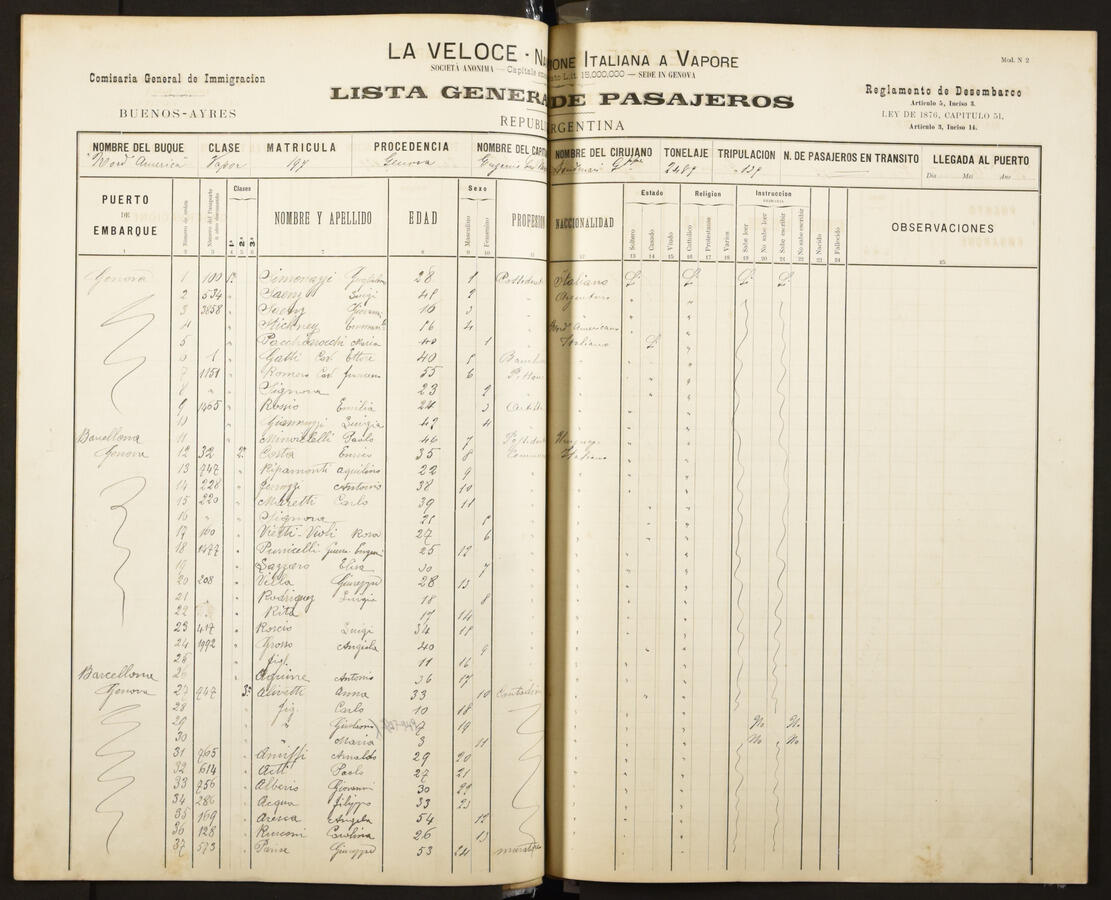 LA VELOCE - Na ione Italiana a Vapore
SOCIETÀ ANONIMA — Capitale L.it. 15,000,000 — SEDE IN GENOVA
Mod. N 2
Comisaria General de Immigracion
BUENOS-AYRES
LISTA GENERA DE PASAJEROS
REPUBLI ARGENTINA
Reglamento de Desembarco
Articulo 5, Inciso 3.
LEY DE 1876, CAPITULO 51,
Articulo 3, Inciso 14.
NOMBRE DEL BUQUE CLASE MATRICULA PROCEDENCIA NOMBRE DEL CAPIT NOMBRE DEL CIRUJANO TONELAJE TRIPULACION N. DE PASAJEROS EN TRANSITO LLEGADA AL PUERTO
"Nord America" Vapor 197 Genova Eugenio 2489 139
Dia Mes Ano
PUERTO DE EMBARQUE Número de orden Clases 1ª 2ª 3ª NOMBRE Y APELLIDO EDAD Sexo Masculino Femenino PROFESION NACCIONALIDAD Estado Soltero Casado Viudo Religion Catolico Protestante Varios Instruccion PRIMARIA Sabe leer No sabe leer Sabe escribir No sabe escribir Nacido Fallecido OBSERVACIONES
Genova 1 100 1ª Simonazzi 28 1 Italiano
2 534 Saenz Luigi 48 2 Argentino
3 3858 Saenz Giovanni 16 3
4 Stickney 16 4 Nord Americano
5 Maria 40 1 Italiano
6 1 Gatti Cav. Ettore 40 5
7 1151 Romero Cav. 55 6
8 Signora 23 2
9 1405 Rosio Emilia 24 3
10 Giannuzzi Luigia 47 4
Barcellona 11 Minorelli Paolo 46 7
Genova 12 32 2ª Costa Enrico 35 8 Italiano
13 747 Ripamonti Aquilino 22 9
14 228 Antonio 38 10
15 220 Maretti Carlo 39 11
16 Signora 21 5
17 160 Vietti-Violi Rosa 27 6
18 1477 25 12
19 Lazzero Elisa 30 7
20 208 Villa Giuseppe 28 13
21 Rodriguez Luigia 18 8
22 Rita 17 14
23 417 Roscio Luigi 34 15
24 1992 Grosso Angiola 40 9
25 fig. 11 16
Barcellona 26 Aguirre Antonio 36 17
Genova 27 747 3ª Alivetti Anna 33 10 Contadin
28 fig. Carlo 10 18
29 7 19 No No
30 Maria 3 11 No No
31 765 Arnaldo 29 20
32 614 Paolo 27 21
33 756 Alberio Giovanni 30 22
34 286 Acqua Filippo 33 23
35 169 Aresca Angela 54 12
36 128 Rusconi Carolina 26 13
37 573 Giuseppe 53 24